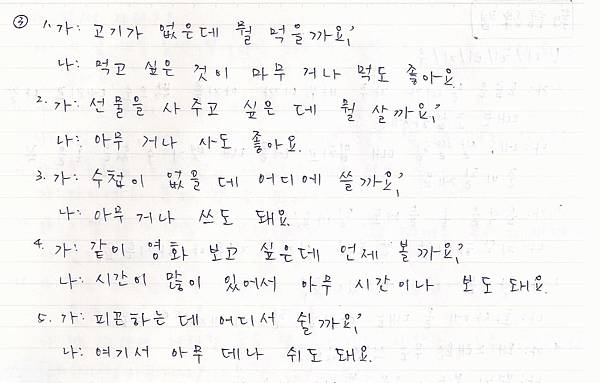 ③ 1. 가: 고기가 없은데 뭘 먹을까요?
나: 먹고 싶은 것이 아무 거나 먹도 좋아요.
2. 가: 선물을 사 주고 싶은 데 뭘 살까요?
나: 아무 거나 사도 좋아요.
3. 가: 수첩이 없을 데 어디에 쓸까요?
나: 아무 거나 쓰도 돼요.
4. 가: 같이 영화 보고 싶은데 언제 볼까요?
나: 시간이 많이 있어서 아무 시간이나 보도 돼요.
5. 가: 피곤하는 데 어디서 쉴까요?
나: 여기서 아무 데나 쉬도 돼요.